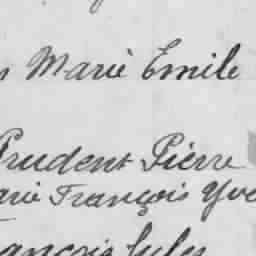 Marie Emile
Prudent Pierre
Marie François Yve
François Jules